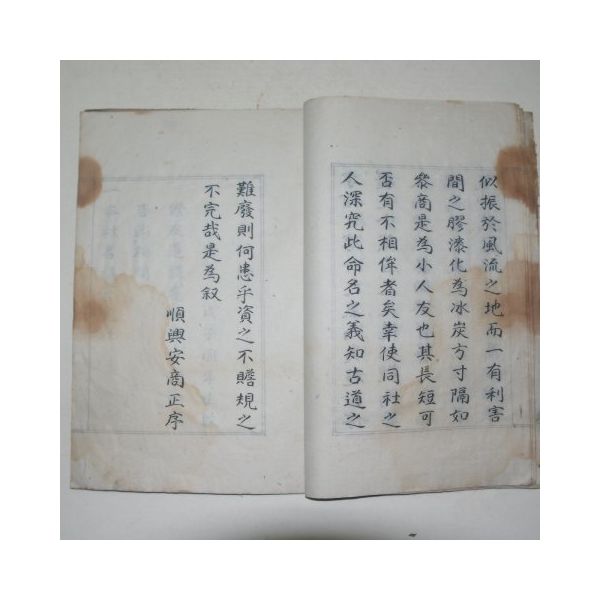 似振於風流之地而一有利害
間之膠漆化為冰炭方寸隔如
叅商是為小人友也其長短可
否有不相侔者矣幸使同社之
人深究此命名之義知古道之
難廢則何患乎資之不贍規之
不完哉是為叙
順興安商正序